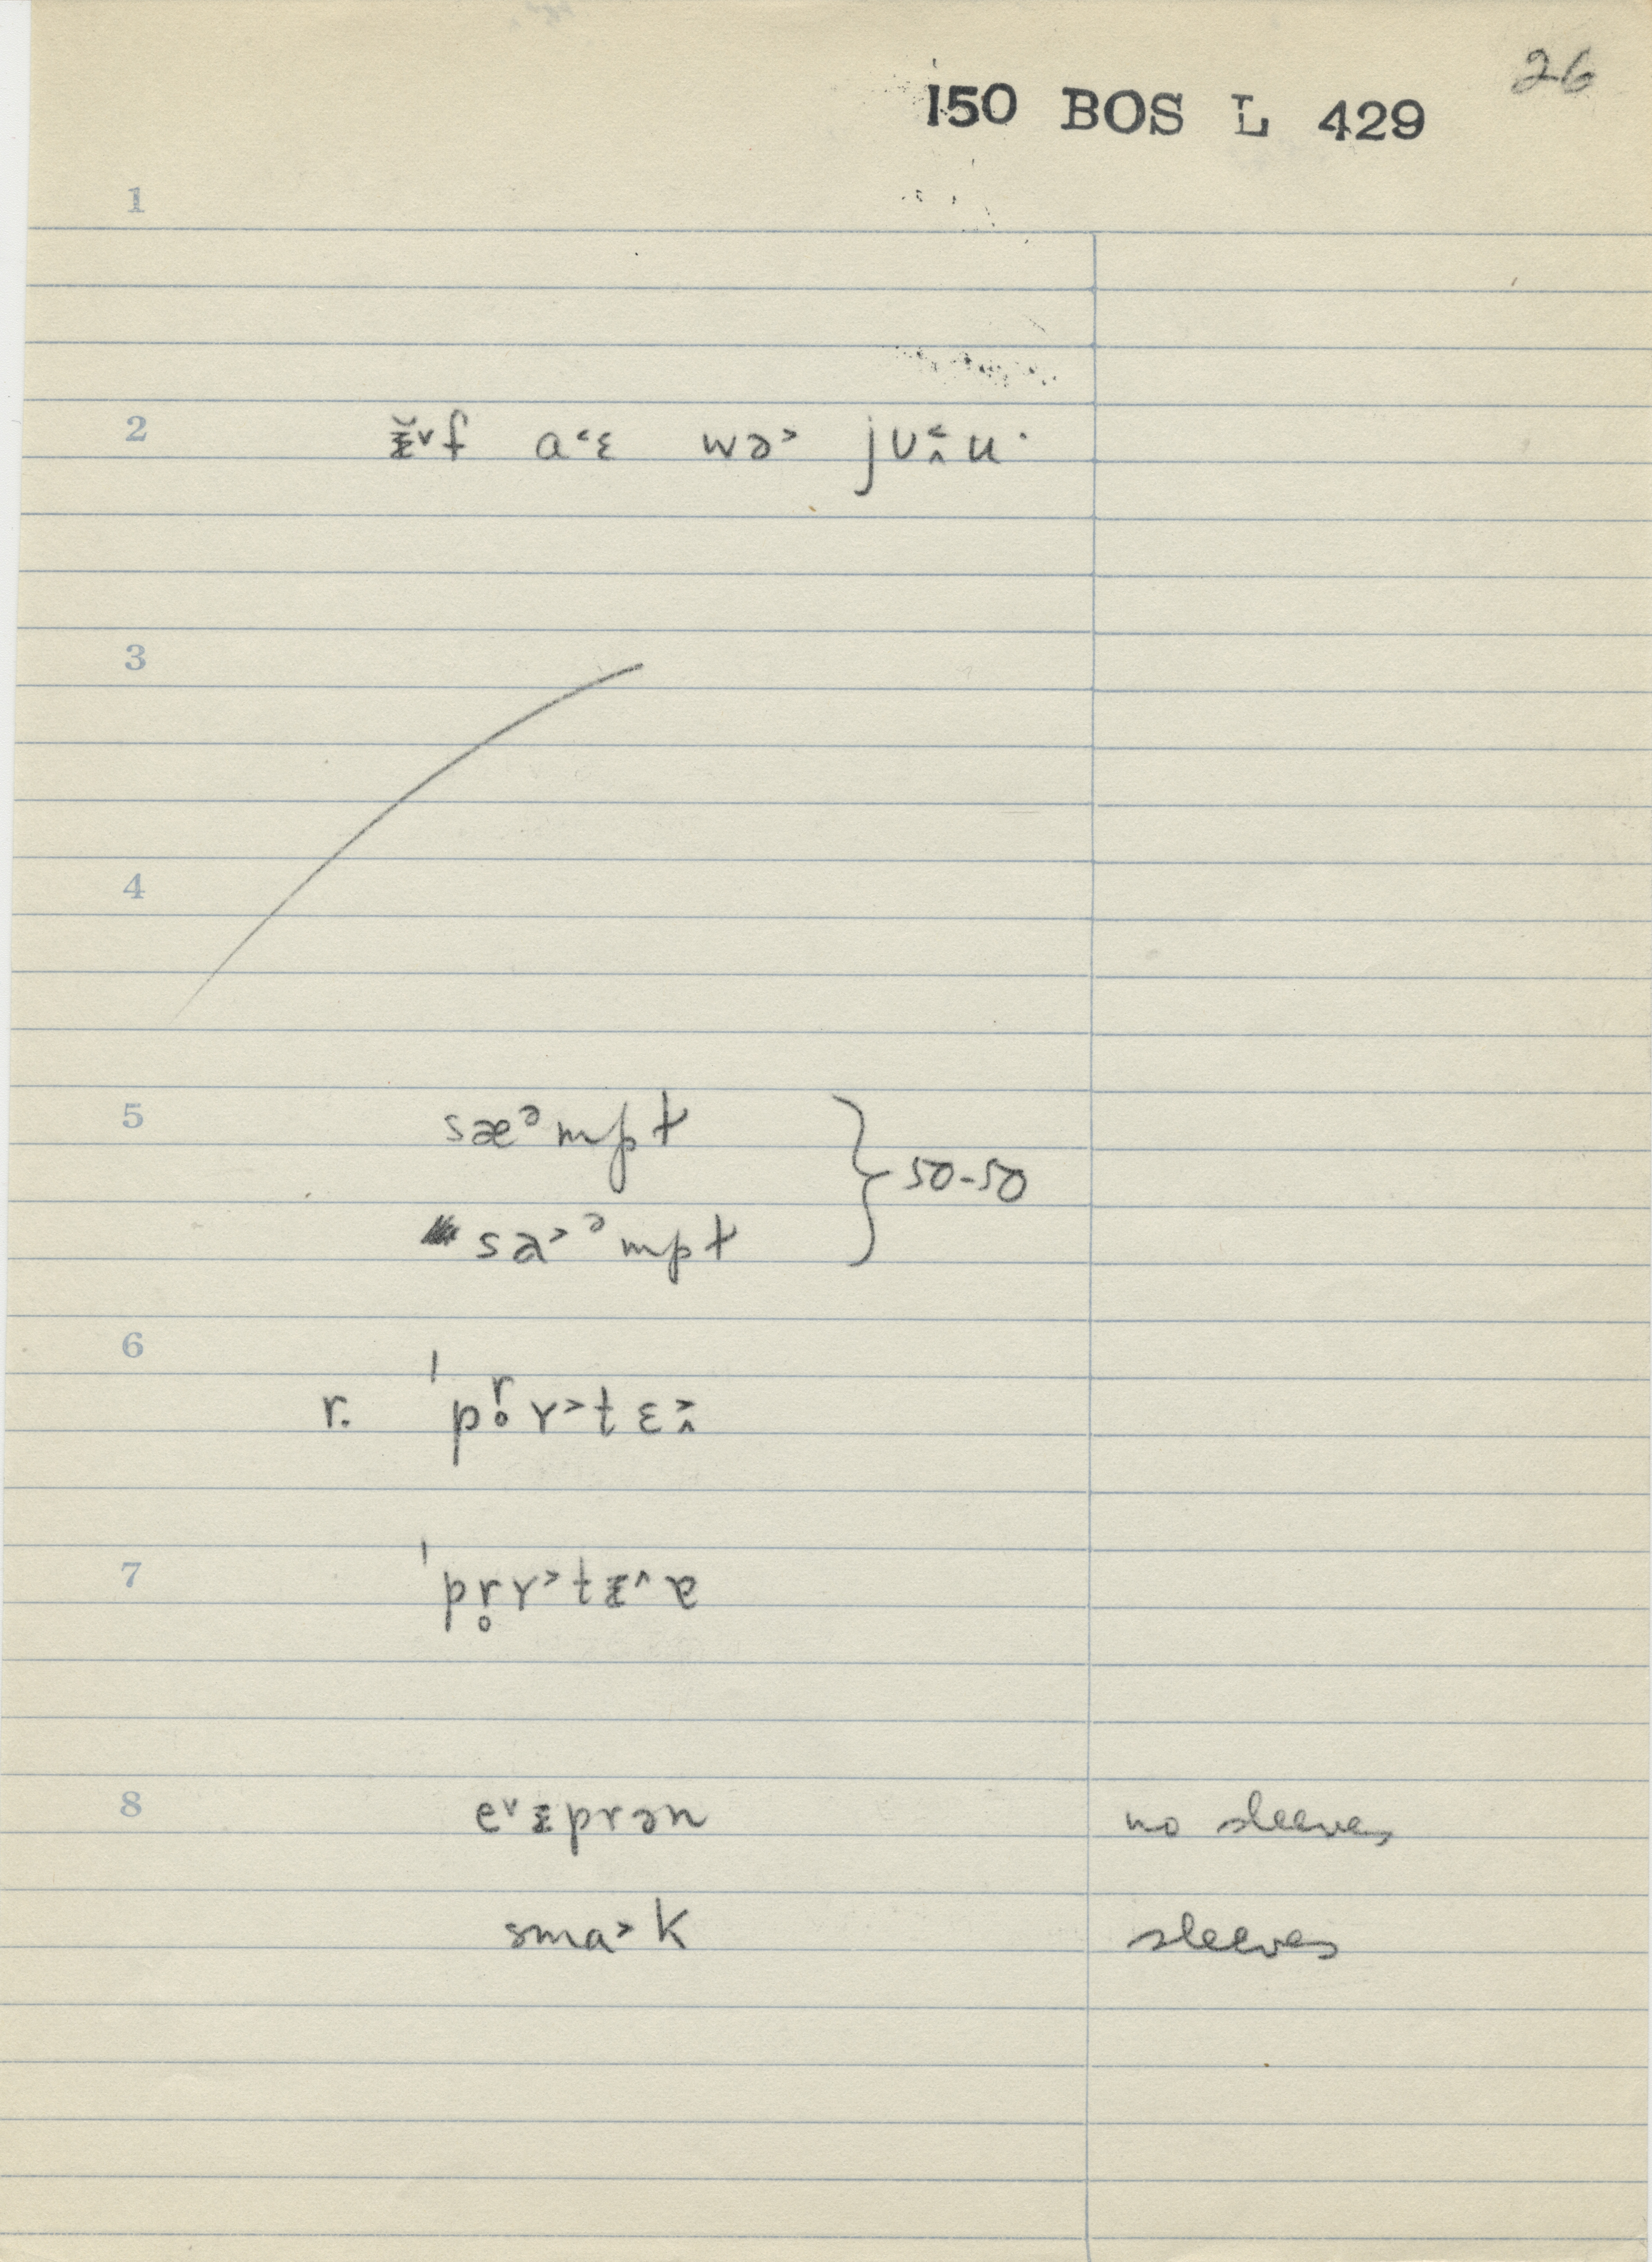 26
150 BOS L 429
1
2 ᵻ̆˅f a˂ɛ wə˃ jʊ˂̭u·
3
4
5 sæᵊmpt
sa˃ᵊmpt } 50-50
6
r. 'pr̥ɤ˃tɛ˃̭
7 'pr̥ɤ˃tᵻ˄ɐ
8 e˅ᵻprən no sleeves
sma˃k sleeves